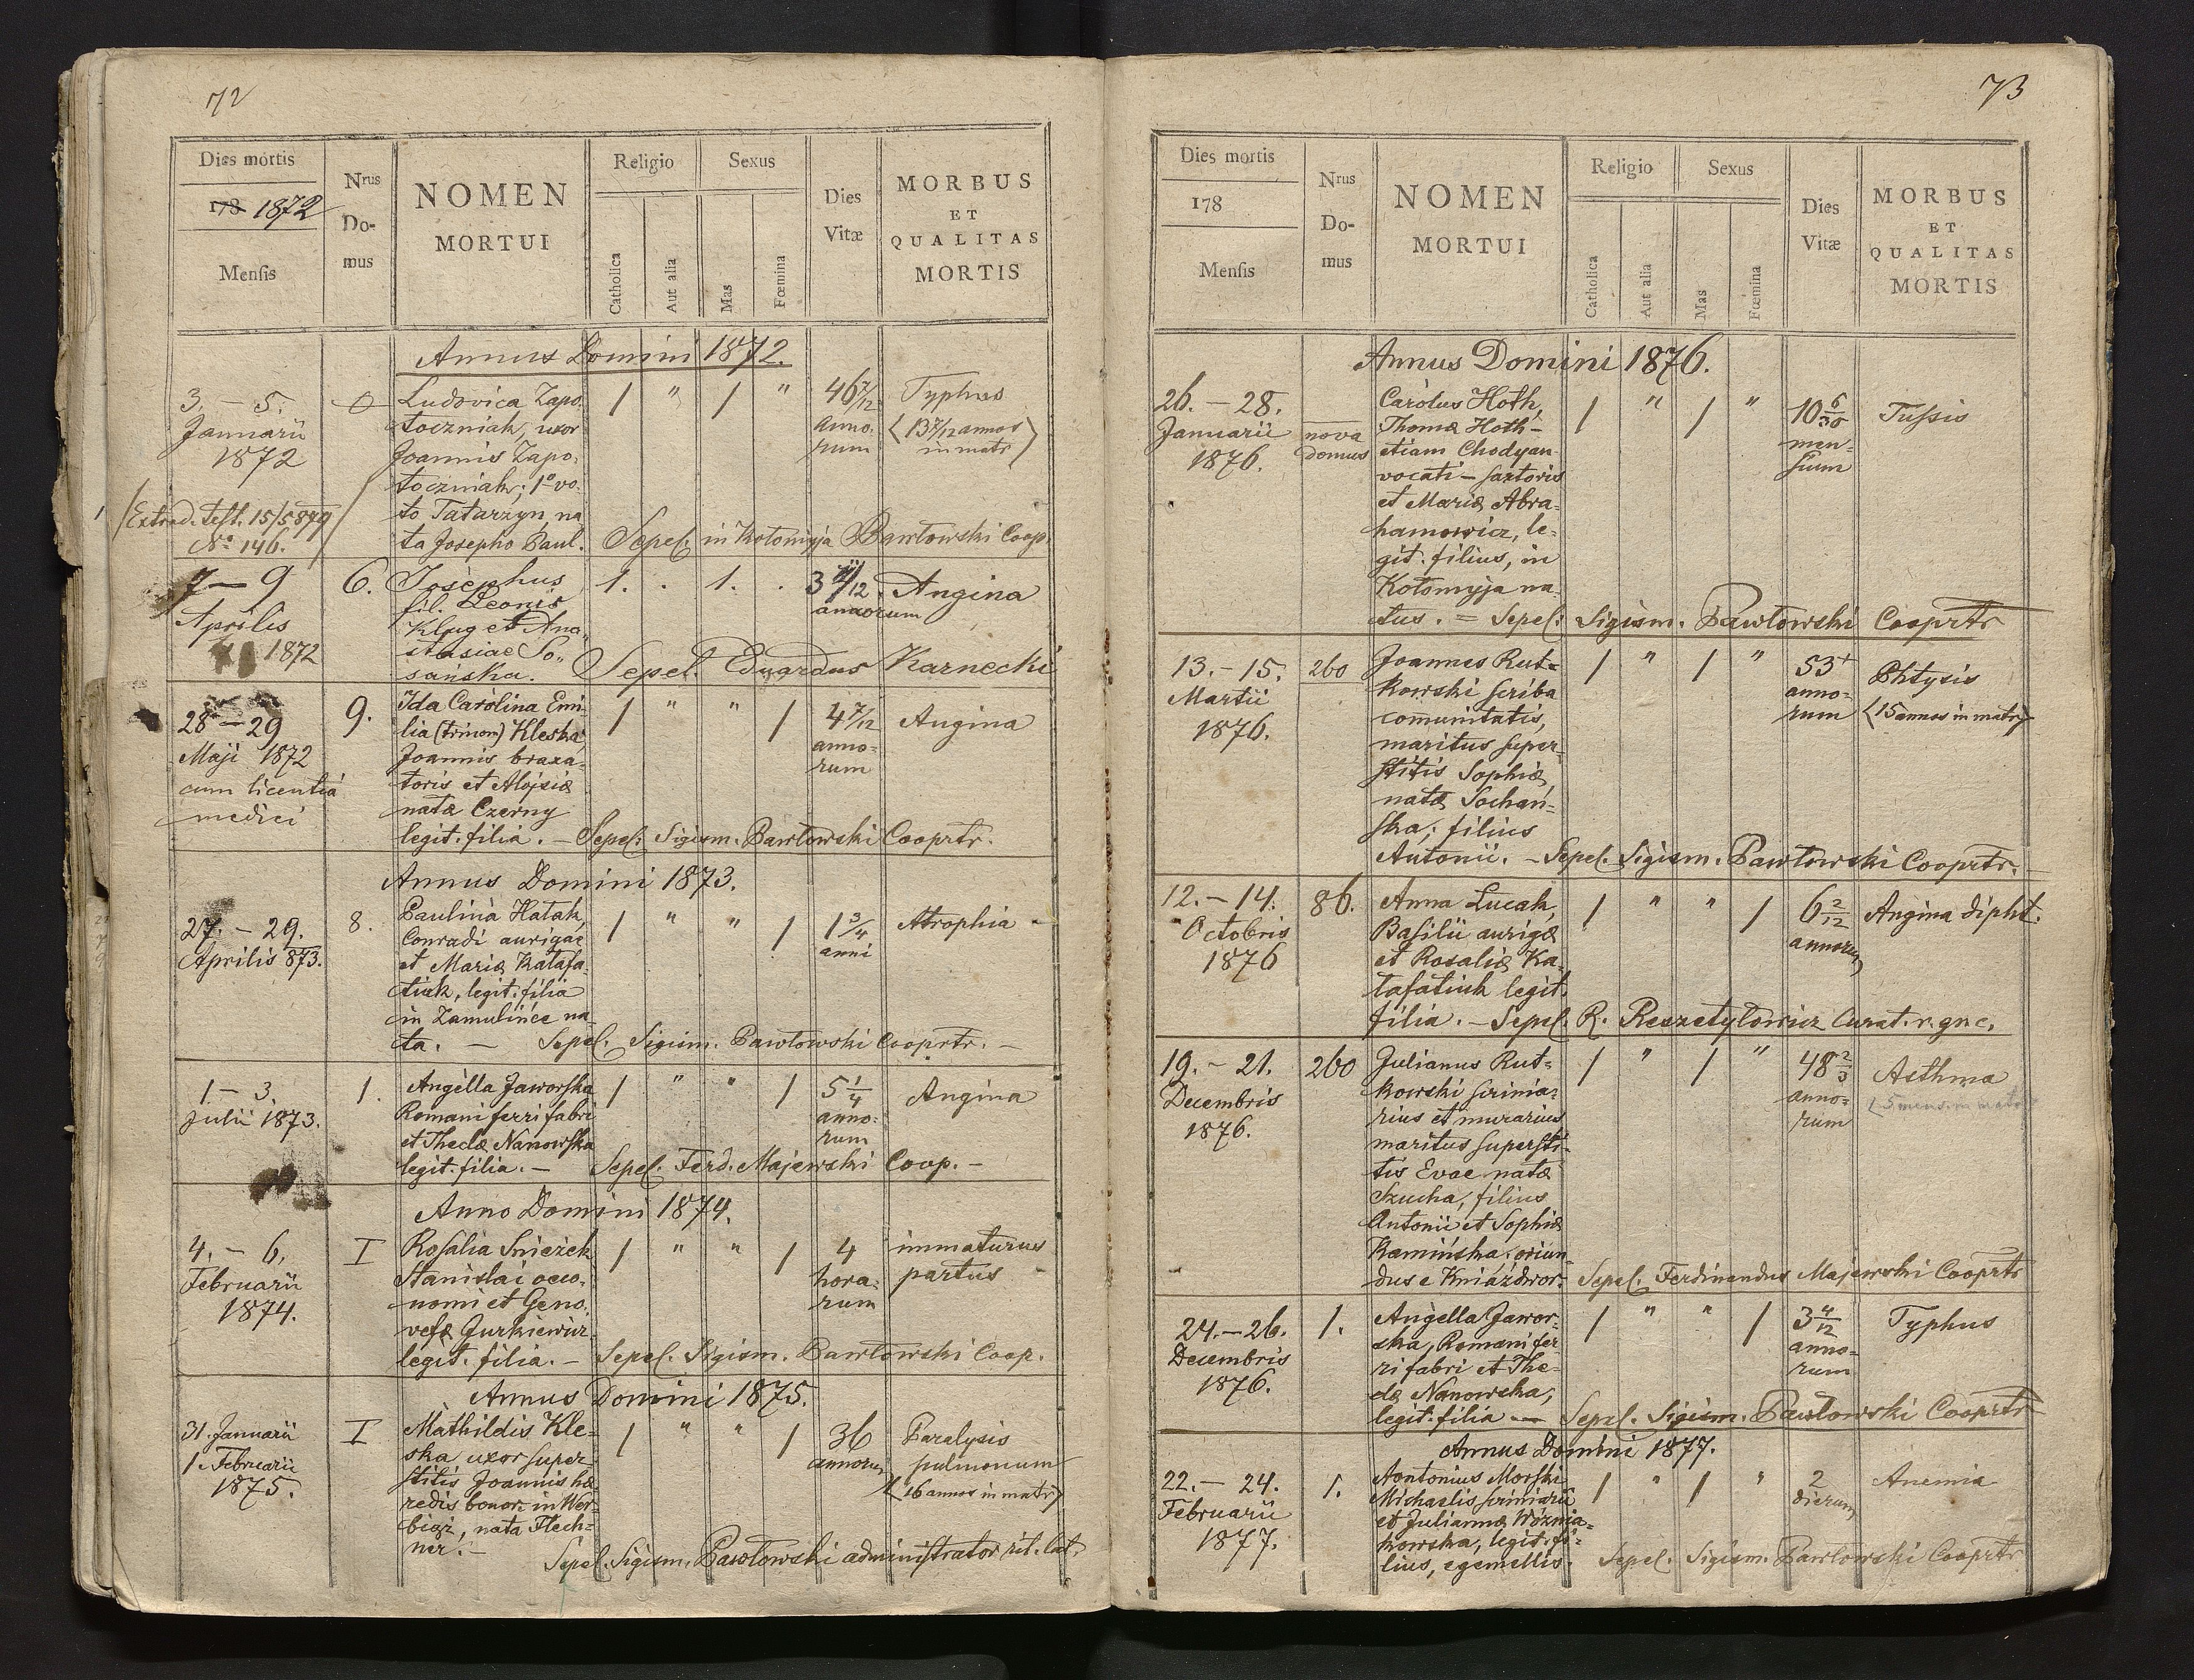 72
Dies mortis
178 1872
Mensis
Nrus
Do-
mus
NOMEN
MORTUI
Religio
Catholica
Aut alia
Sexus
Mas
Fœmina
Dies
Vitæ
MORBUS
ET
QUALITAS
MORTIS
Annus Domini 1872.
3. – 5.
Januarii
1872
/Extrad. test. 15/5 879/
No 146.
0
Ludovica Zapo-
toczniak, uxor
Joannis Zapo-
toczniak; 1o vo-
to Tatarzyn, na-
ta Josepho Paul.
/ " / "
46 7/12
anno-
rum
Typhus
(13 7/12 annos
in matr)
Sepel. in Kołomyja Pawłowski Coop.
7 – 9
Aprilis
1872
6.
Josephus
fil. Leonis
Klug et Ana-
stasiae So-
sańska.
1. . 1. .
3 /12
annorum
Angina
Sepel. Eduardus Karnecki
28 – 29
Maji 1872
cum licentia
medici
9.
Ida Carolina Emi-
lia (trinom) Kleska,
Joannis braxa-
toris et Alojsiæ
natæ Czerny
legit. filia. – Sepel: Sigism. Pawłowski Cooprtr.
/ " " /
4 7/12
anno-
rum
Angina
Annus Domini 1873.
27. – 29.
Aprilis 873.
8.
Paulina Hatak,
Conradi aurigae
et Mariæ Katafa-
tiuk, legit. filia
in Zamulińce na-
ta. – Sepel. Sigism. Pawłowski Cooprtr. –
/ " " /
1 3/4
anni
Atrophia
1 – 3.
Julii 1873.
1.
Angella Jaworska
Romani ferri fabri
et Theclæ Nanowska
legit. filia. – Sepel. Ferd. Majewski Coop. –
/ " " /
5 1/4
anno-
rum
Angina
Anno Domini 1874.
4. – 6.
Februarii
1874.
I
Rosalia Snieżek
Stanislai oeco-
nomi et Geno-
vefæ Jurkiewicz
legit. filia. – Sepel. Sigism. Pawłowski Coop.
/ " " /
4
hora-
rum
immaturus
partus
Annus Domini 1875.
31. Januarii
1. Februarii
1875.
I
Mathildis Kle-
ska uxor super-
stitis Joannis hæ-
redis bonor. in Wer-
biąż, nata Flech-
ner. – Sepel. Sigism. Pawłowski administrator rit. lat.
/ " " /
36
annorum
Paralysis
pulmonum
(16 annos in matr)
73
Dies mortis
178
Mensis
Nrus
Do-
mus
NOMEN
MORTUI
Religio
Catholica
Aut alia
Sexus
Mas
Fœmina
Dies
Vitæ
MORBUS
ET
QUALITAS
MORTIS
Annus Domini 1876.
26. – 28.
Januarii
1876.
nova
domus
Carolus Hoth,
Thomæ Hoth –
etiam Chodyan
vocati – sartoris
et Mariæ Abra-
hamowicz, le-
git. filius, in
Kołomyja na-
tus. = Sepel: Sigism. Pawłowski Cooprtr
/ " / "
10 6/30
men-
sium
Tussis
13. – 15.
Martii
1876.
260
Joannes Rut-
kowski scriba
comunitatis,
maritus super-
stitis Sophiæ,
natæ Sochań-
ska; filius
Antonii. – Sepel. Sigism. Pawłowski Cooprtr. –
/ " / "
53
anno-
rum
Phtysis
(15 annos in matr)
12. – 14.
Octobris
1876
86.
Anna Lucak,
Basilii aurigæ
et Rosaliæ Ka-
tafatiuk legit.
filia. – Sepel. R. Reszetyłowicz Curat. r. gr. c.
/ " " /
6 2/12
annorum
Angina dipht.
19. – 21.
Decembris
1876.
260
Julianus Rut-
kowski scrinia-
rius et murarius
maritus supersti-
tis Evae natæ
Szucha, filius
Antonii et Sophiæ
Kamińska, oriun-
dus e Kniaźdwor. Sepel. Ferdinandus Majewski Cooprtr
/ " / "
48 2/3
anno-
rum
Asthma
(5 mens. in matr)
24. – 26.
Decembris
1876.
1.
Angella Jawor-
ska, Romani fer-
ri fabri et The-
clæ Nanowska,
legit. filia — Sepel. Sigism. Pawłowski Cooprtr
/ " " /
3 4/12
anno-
rum
Typhus
Annus Domini 1877.
22. – 24.
Februarii
1877.
1.
Aontonius Morski
Michaelis scriniarii
et Juliannæ Woznia-
kowska, legit. fi-
lius, e gemellis. Sepel. Sigism. Pawłowski Cooprtr
/ " / "
2
dierum
Anemia